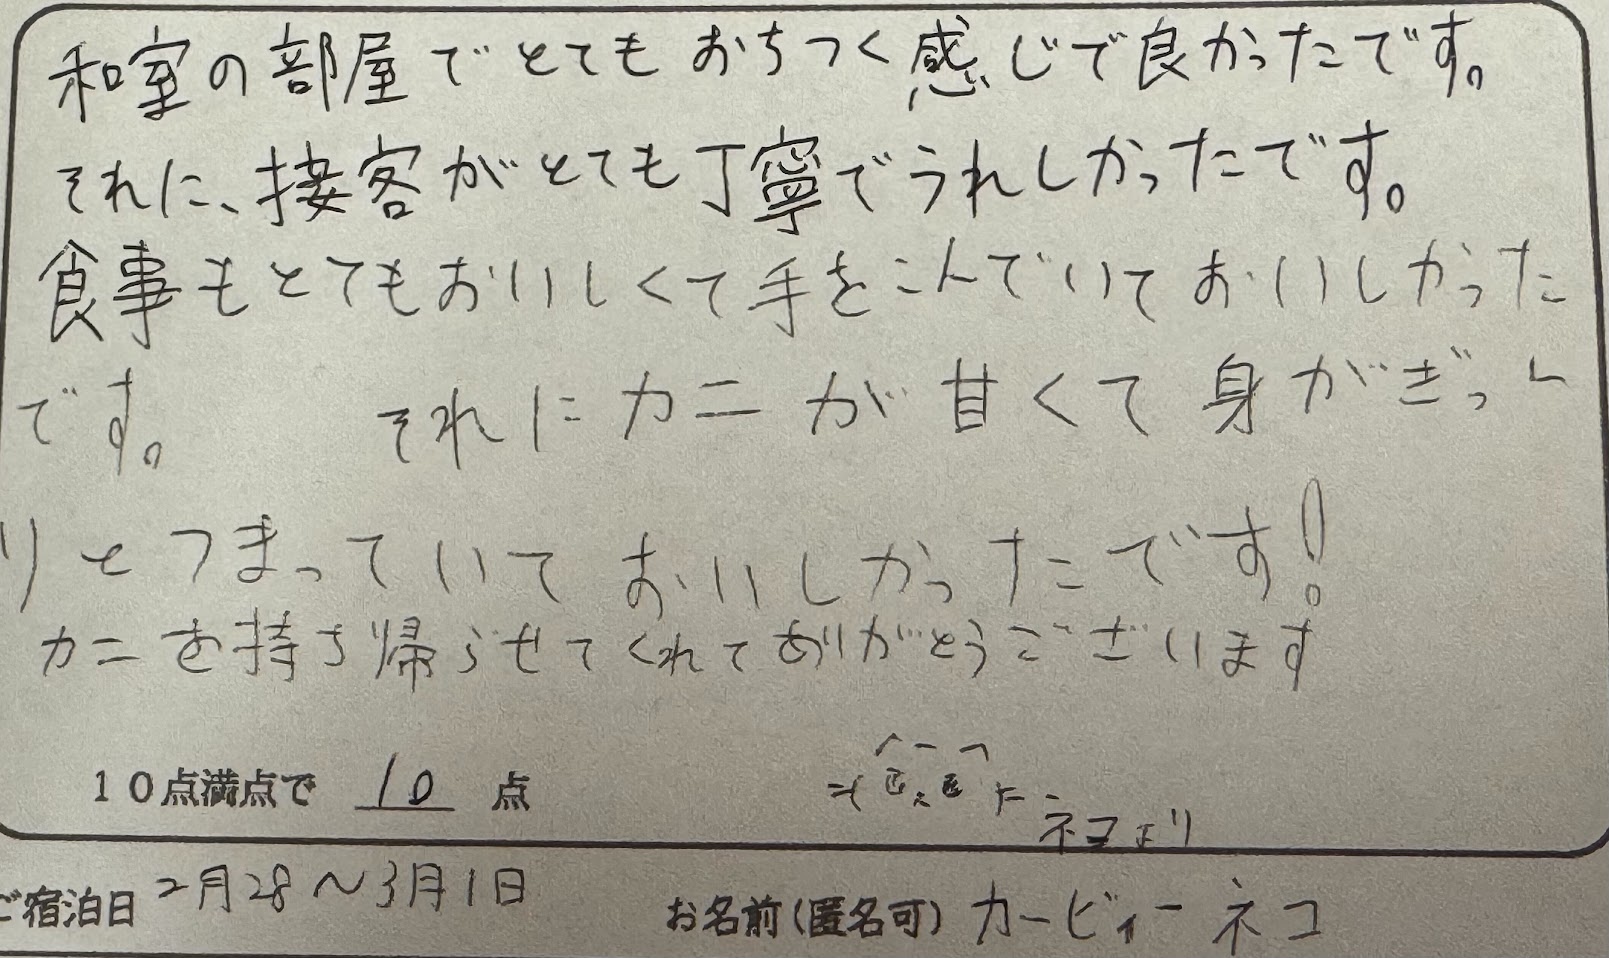 和室の部屋でとてもおちつく感じで良かったです。
それに、接客がとても丁寧でうれしかったです。
食事もとてもおいしくて手をこんでいておいしかった
です。 それにカニが甘くて身がぎっし
りとつまっていておいしかったです!
カニを持ち帰らせてくれてありがとうございます
10点満点で 10 点
ネコより
ご宿泊日 2月28〜3月1日 お名前(匿名可) カービィーネコ